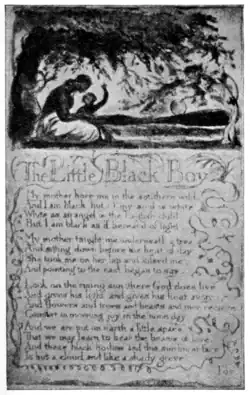 The Little Black Boy
My mother bore me in the southern wild
And I am black, but O! my soul is white
White as an angel is the English child
But I am black as if bereav'd of light
My mother taught me underneath a tree
And sitting down before the heat of day
She took me on her lap and kissed me
And pointing to the east began to say
Look on the rising sun there God does live
And gives his light and gives his heat away
And flowers and trees and beasts and men recieve
Comfort in morning joy in the noon day
And we are put on earth a little space
That we may learn to bear the beams of love
And these black bodies and this sun-burnt face
Is but a cloud, and like a shady grove
For